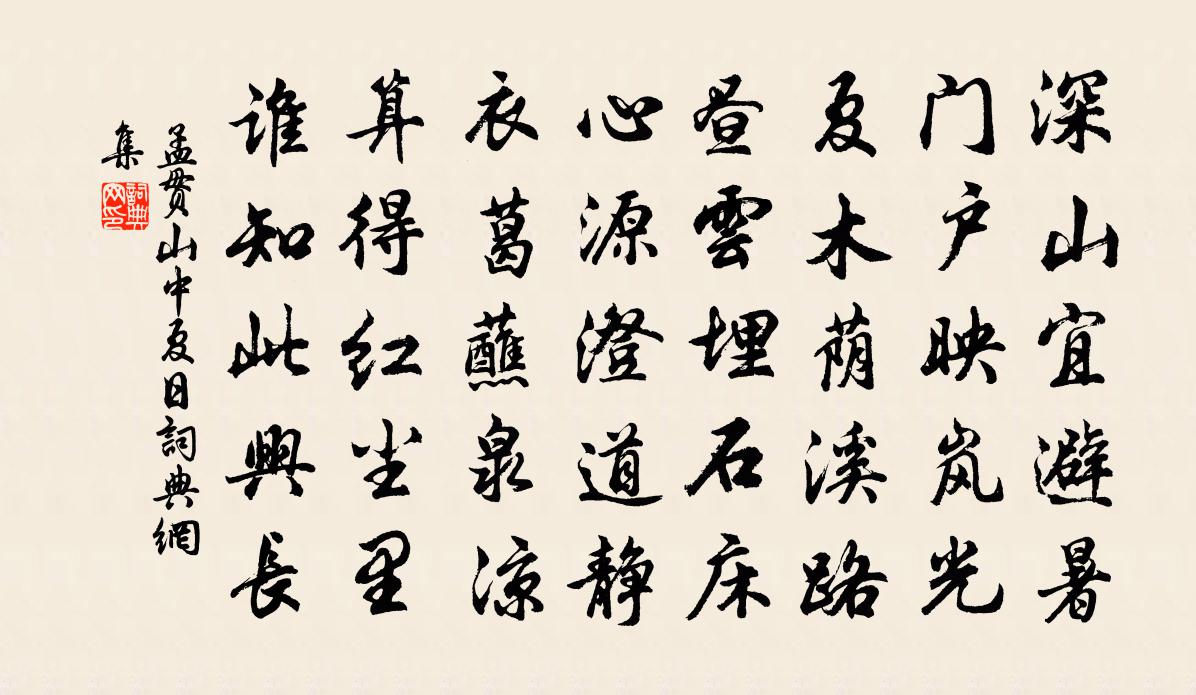 深山宜避暑
门户映岚光
夏木荫溪路
昼雲埋石床
心源澄道静
衣葛蘸泉凉
算得红尘里
谁知此興長
孟贯山中夏日詞典網
集
詞典网印